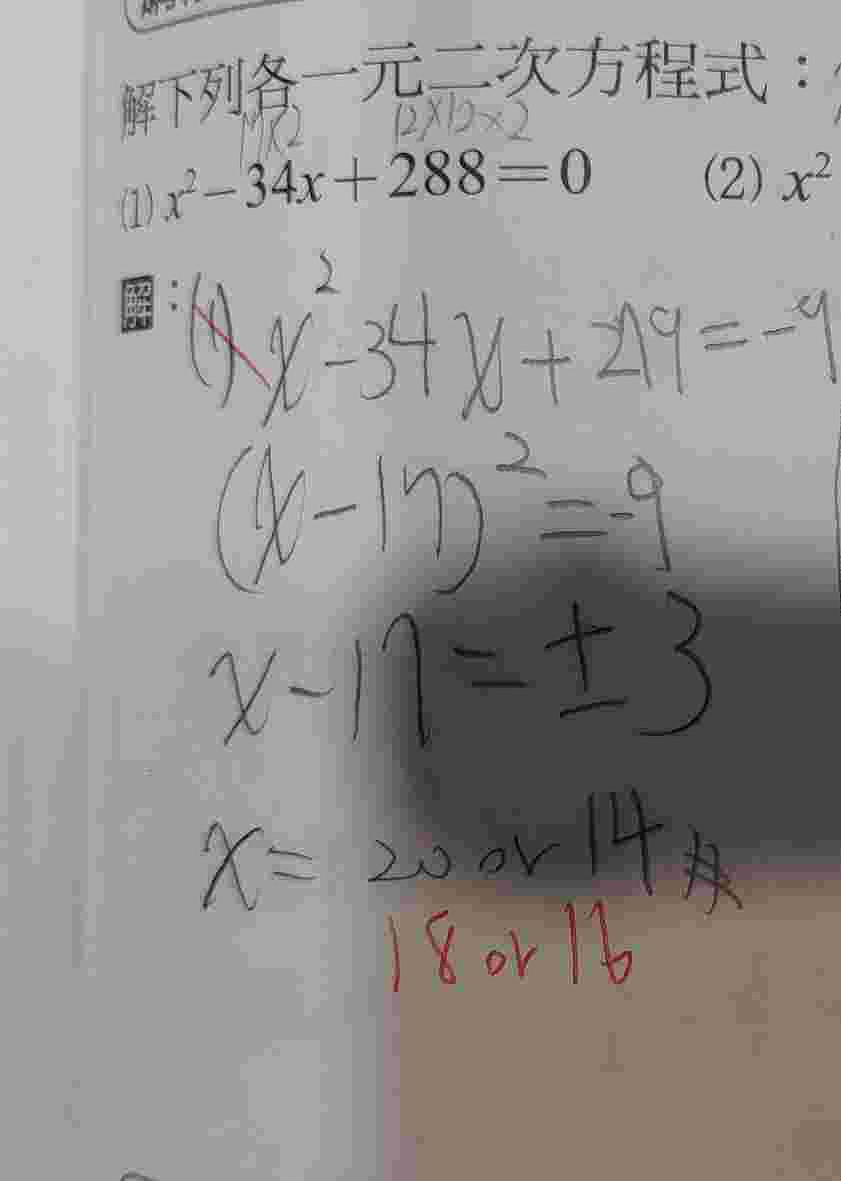 解下列各一元二次方程式：
17×2 12×12×2
(1) x²－34x＋288＝0 (2) x²
解：(1) x²-34x+279=-9
(x-17)²=-9
x-17=±3
x=20 or 14
18 or 16